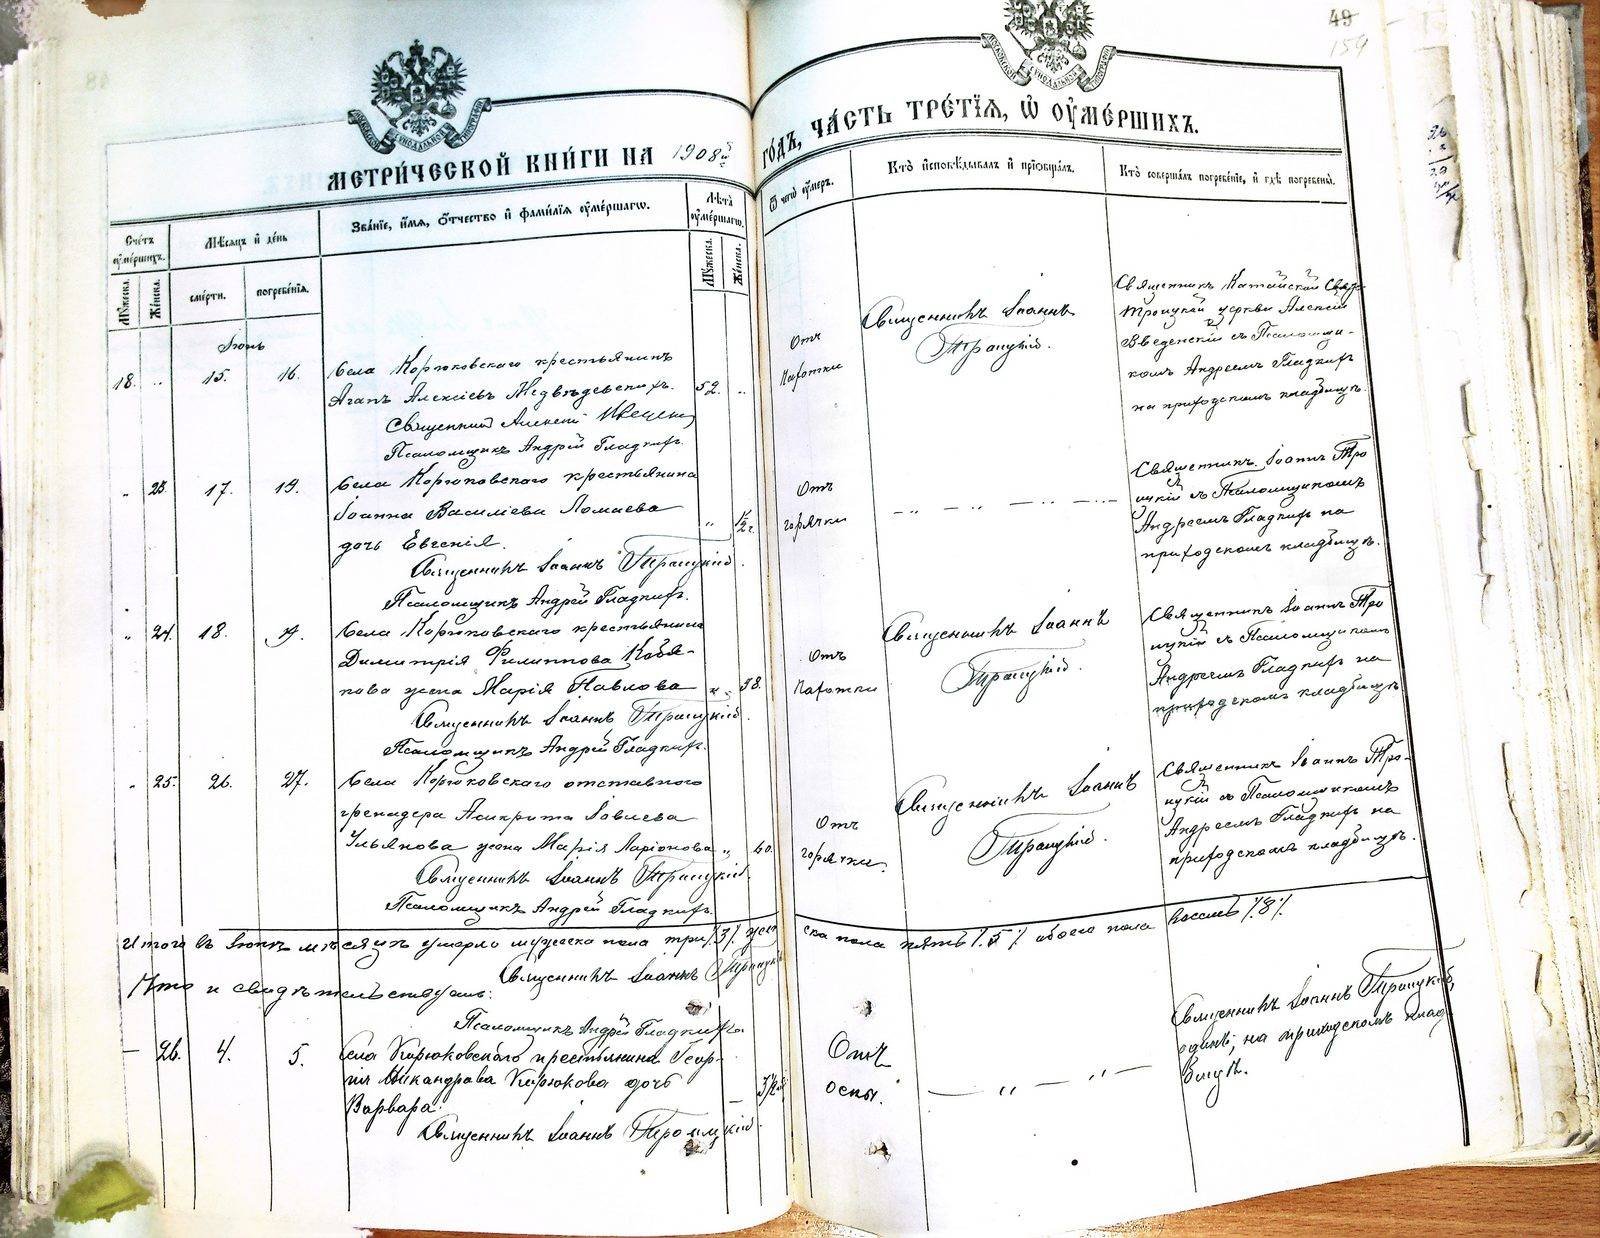 49
159
МЕТРИ́ЧЕСКОЙ КНИ́ГИ НА 1908й
ГО́ДЪ, ЧА́СТЬ ТРЕ́ТІѦ, Ѡ҆ ОУ҆МЕ́РШИХЪ.
Сче́тъ оу҆ме́ршихъ.
Мѣ́сѧцъ и҆ де́нь
Зва́нїе, и҆́мѧ, ѻ҆́тчество и҆ фамі́лїѧ оу҆ме́ршагѡ.
Лѣ́та оу҆ме́ршагѡ.
Ѿ чегѡ̀ оу҆́меръ.
Кто̀ и҆сповѣ́дывалъ и҆ прїѡбща́лъ.
Кто̀ соверша́лъ погребе́нїе, и҆ гдѣ̀ погребены̀.
Мꙋ́жеска.
Же́нска.
сме́рти.
погребе́нїѧ.
Мꙋ́жеска.
Же́нска.
Іюнь
18. „ 15. 16.
Села Корюковскаго крестьянинъ
Агапъ Алексіевъ Медвѣдевскихъ. 52. „
Священникъ Алексій Введенс
Псаломщикъ Андрей Гладкихъ.
Отъ
чахотки
Священникъ Іоаннъ
Троицкій.
Священникъ Катайской Свято
Троицкой церкви Алексій
Введенскій съ Псаломщи-
комъ Андреемъ Гладкихъ
на приходскомъ кладбищѣ.
„ 23. 17. 19.
Села Корюковскаго крестьянина
Іоанна Василіева Ломаева
дочь Евгенія. „ ½ г.
Священникъ Іоаннъ Троицкій.
Псаломщикъ Андрей Гладкихъ.
Отъ
горячки
Священникъ Іоаннъ Тро
ицкій съ Псаломщикомъ
Андреемъ Гладкихъ на
приходскомъ кладбищѣ.
„ 24. 18. 19.
Села Корюковскаго крестьянина
Димитрія Филиппова Кобя-
кова жена Марія Павлова „ 38.
Священникъ Іоаннъ Троицкій.
Псаломщикъ Андрей Гладкихъ.
Отъ
чахотки
Священникъ Іоаннъ
Троицкій.
Священникъ Іоаннъ Тро
ицкій съ Псаломщикомъ
Андреемъ Гладкихъ на
приходскомъ кладбищѣ.
„ 25. 26. 27.
Села Корюковскаго отставного
гренадера Асикрита Іовлева
Ульянова жена Марія Ларіонова „ 40.
Священникъ Іоаннъ Троицкій.
Псаломщикъ Андрей Гладкихъ.
Отъ
горячки.
Священникъ Іоаннъ
Троицкій.
Священникъ Іоаннъ Тро-
ицкій съ Псаломщикомъ
Андреемъ Гладкихъ на
приходскомъ кладбищѣ.
Итого въ Іюнѣ мѣсяцѣ умерло мужеска пола три /.3./ жен
ска пола пять /.5./ обоего пола восемь /.8./.
Священникъ Іоаннъ Троицкій
Что и свидѣтельствуемъ:
Псаломщикъ Андрей Гладкихъ
— 26. 4. 5.
Села Корюковскаго крестьянина Геор-
гія Никандрова Корюкова дочь
Варвара.
Священникъ Іоаннъ Троицкій.
Отъ
оспы.
Священникъ Іоаннъ Троицкій,
одинъ, на приходскомъ клад
бищѣ.